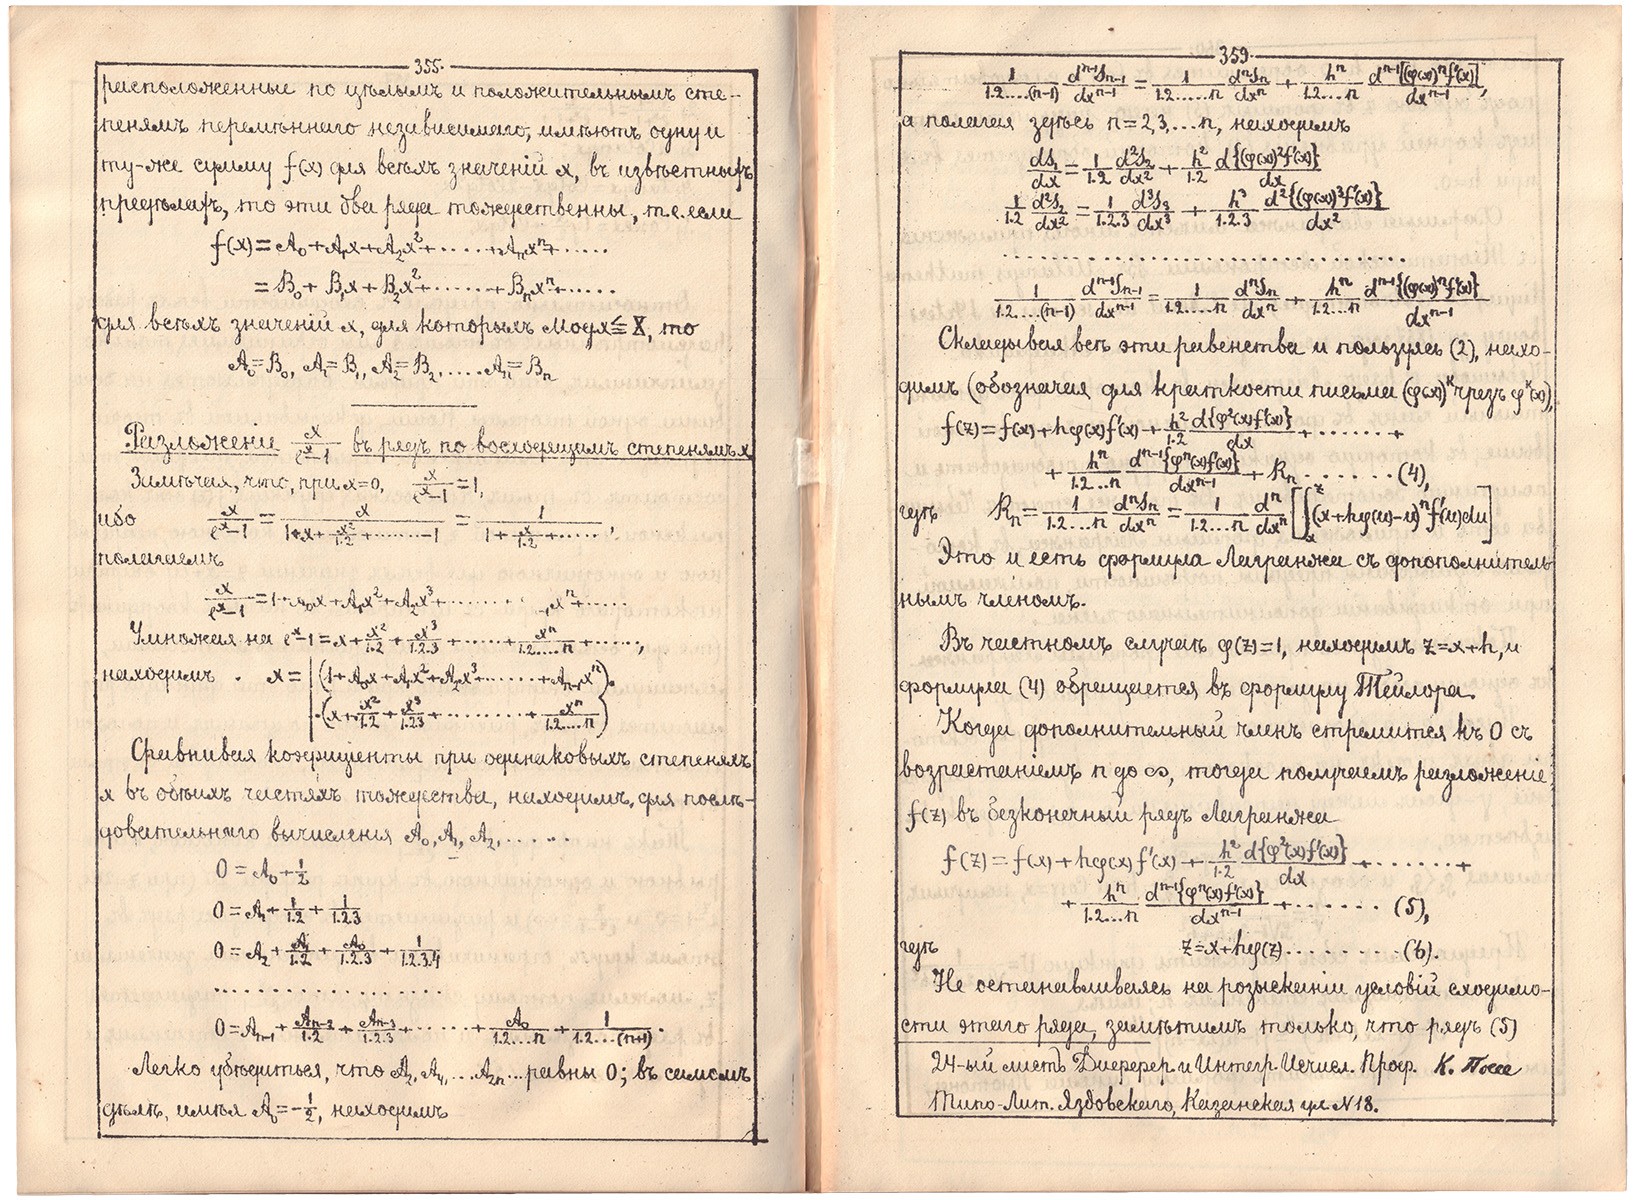 355.
расположенные по цѣлымъ и положительнымъ сте-
пенямъ перемѣннаго независимаго, имѣютъ одну и
ту-же сумму f(x) для всѣхъ значеній x, въ извѣстныхъ
предѣлахъ, то эти два ряда тождественны, т.е. если
f(x) = A₀ + A₁x + A₂x² + ..... + Aₙxⁿ + .....
= B₀ + B₁x + B₂x² + ..... + Bₙxⁿ + .....
для всѣхъ значеній x, для которыхъ Мод x ≦ X, то
A₀ = B₀, A₁ = B₁, A₂ = B₂, ..... Aₙ = Bₙ
Разложеніе x/(eˣ-1) въ рядъ по восходящимъ степенямъ x
Замѣчая, что, при x=0, x/(eˣ-1) = 1,
ибо x/(eˣ-1) = x/(1+x+x²/1.2+.......-1) = 1/(1+x/1.2+.....),
полагаемъ
x/(eˣ-1) = 1 + A₀x + A₁x² + A₂x³ + ....... xⁿ + .....
Умножая на eˣ-1 = x + x²/1.2 + x³/1.2.3 + ..... + xⁿ/1.2....n + .....,
находимъ x = | (1 + A₀x + A₁x² + A₂x³ + ...... + Aₙ₋₁xⁿ).
.(x + x²/1.2 + x³/1.2.3 + ........ + xⁿ/1.2....n)
Сравнивая коэфиціенты при одинаковыхъ степеняхъ
x въ обѣихъ частяхъ тождества, находимъ, для послѣ-
довательнаго вычисленія A₀, A₁, A₂, ......
0 = A₀ + 1/2
0 = A₁ + A₀/1.2 + 1/1.2.3
0 = A₂ + A₁/1.2 + A₀/1.2.3 + 1/1.2.3.4
....................
0 = Aₙ₋₁ + Aₙ₋₂/1.2 + Aₙ₋₃/1.2.3 + ...... + A₀/1.2...n + 1/1.2...(n+1).
Легко убѣдиться, что A₂, A₄, ... A₂ₙ ... равны 0; въ самомъ
дѣлѣ, имѣя A₀ = -1/2, находимъ
359
1/1.2....(n-1) dⁿ⁻¹Sₙ₋₁/dxⁿ⁻¹ = 1/1.2......n dⁿSₙ/dxⁿ + hⁿ/1.2.....n dⁿ⁻¹[(φ(x))ⁿf'(x)]/dxⁿ⁻¹,
а полагая здѣсь n = 2, 3, ... n, находимъ
dS₁/dx = 1/1.2 d²S₂/dx² + h²/1.2 d{(φ(x))²f'(x)}/dx
1/1.2 d²S₂/dx² = 1/1.2.3 d³S₃/dx³ + h³/1.2.3 d²{(φ(x))³f'(x)}/dx²
....................................
1/1.2....(n-1) dⁿ⁻¹Sₙ₋₁/dxⁿ⁻¹ = 1/1.2.....n dⁿSₙ/dxⁿ + hⁿ/1.2....n dⁿ⁻¹{(φ(x))ⁿf'(x)}/dxⁿ⁻¹
Складывая всѣ эти равенства и пользуясь (2), нахо-
димъ (обозначая для краткости письма (φ(x))ᵏ чрезъ φᵏ(x)),
f(z) = f(x) + hφ(x)f'(x) + h²/1.2 d{φ²(x)f'(x)}/dx + ....... +
+ hⁿ/1.2...n dⁿ⁻¹{φⁿ(x)f'(x)}/dxⁿ⁻¹ + Rₙ ........ (4),
гдѣ Rₙ = 1/1.2...n dⁿSₙ/dxⁿ = 1/1.2....n dⁿ/dxⁿ [∫ₓᶻ(x+hφ(u)-u)ⁿf'(u)du]
Это и есть формула Лагранжа съ допополнитель
нымъ членомъ.
Въ частномъ случаѣ φ(z)=1, находимъ z=x+h, и
формула (4) обращается въ формулу Тейлора.
Когда дополнительный членъ стремится къ 0 съ
возрастаніемъ n до ∞, тогда получаемъ разложеніе
f(z) въ безконечный рядъ Лагранжа
f(z) = f(x) + hφ(x)f'(x) + h²/1.2 d{φ²(x)f'(x)}/dx + ....... +
+ hⁿ/1.2...n dⁿ⁻¹{φⁿ(x)f'(x)}/dxⁿ⁻¹ + ....... (5),
гдѣ z = x + hφ(z) ......... (6).
Не останавливаясь на розысканіи условій сходимо-
сти этаго ряда, замѣтимъ только, что рядъ (5)
24-ый листъ Диферер. и Интегр. Исчисл. Проф. К. Поссе
Типо-Лит. Яздовскаго, Казанская ул. N 18.